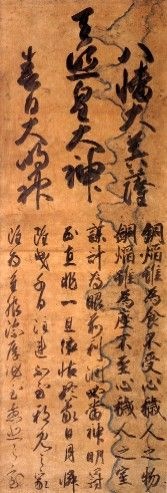 八幡大菩薩
天照皇大神
春日大明神
銅焔雖為食不受心穢人之物
銅焔雖為座不至心穢人之室
謀計為眼前利潤必當神明罰
正直非一旦依怙終蒙日月憐
雖曳千日注連不至邪見之家
雖為重服深厚必至慈悲之室